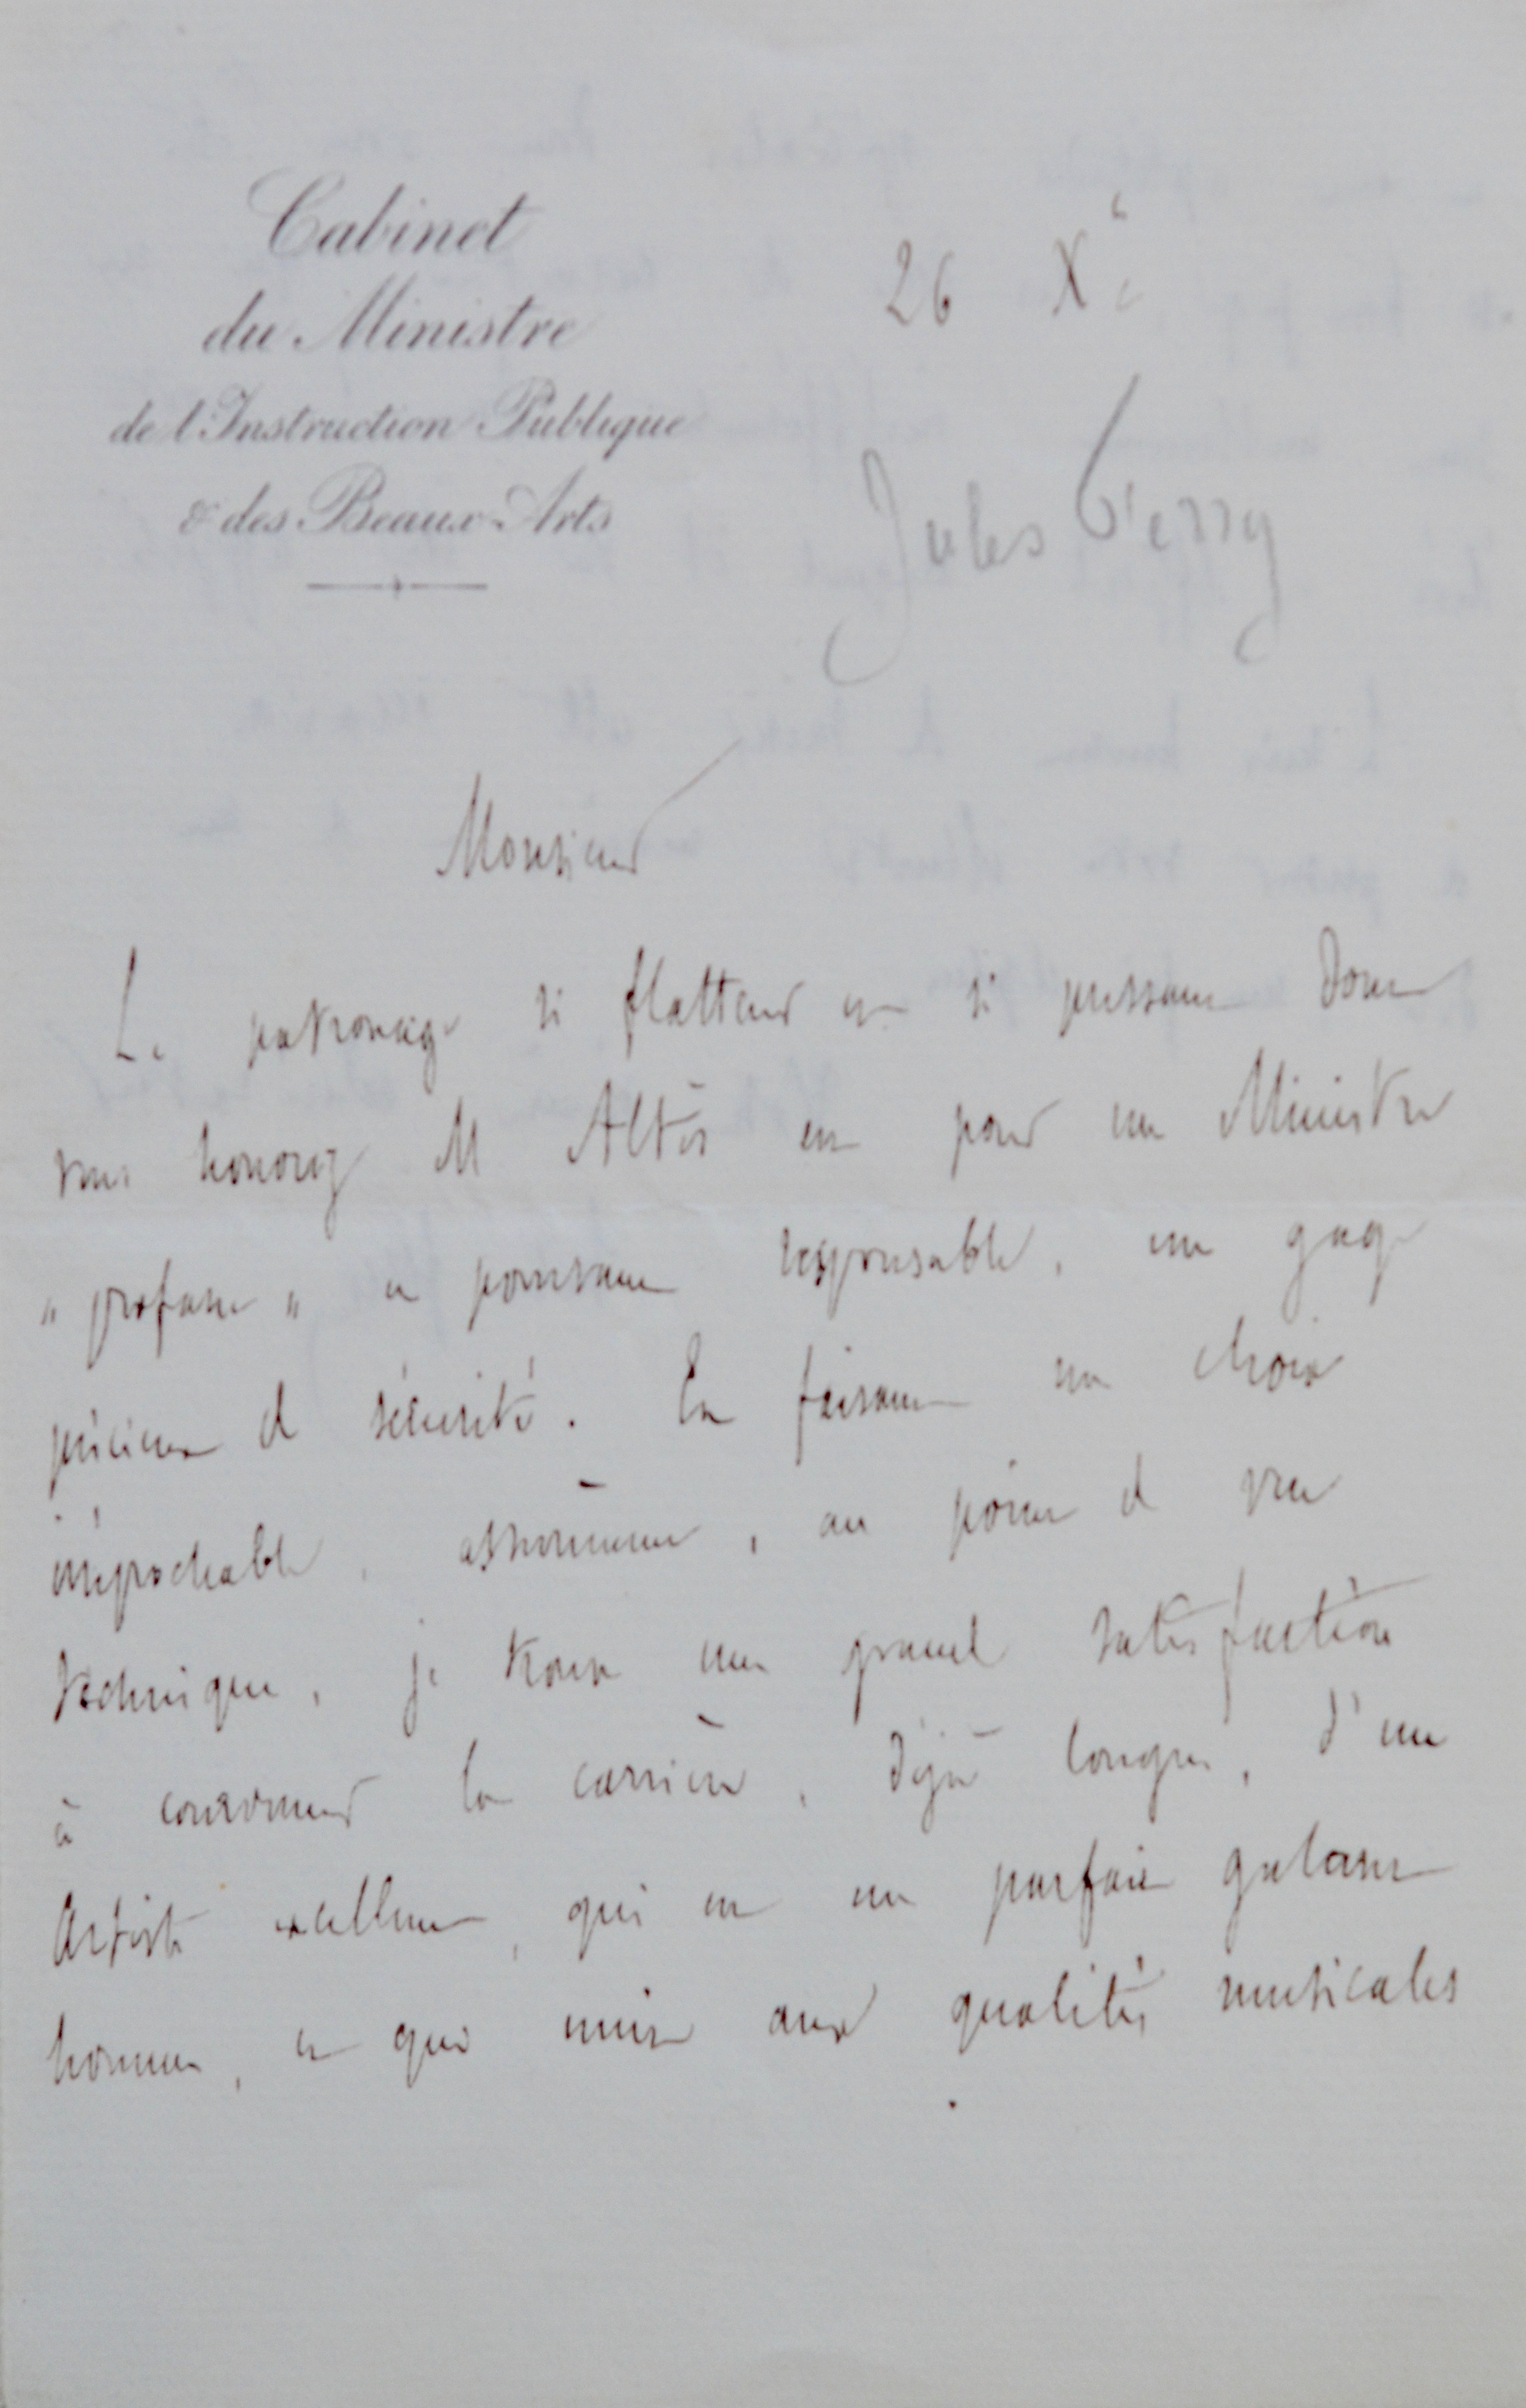 Cabinet
du Ministre
de l'Instruction Publique
& des Beaux-Arts
26 Xe
Jules Ferry
Monsieur
Le patronage si flatteur et si puissant dont
vous honorez M Altès est pour un Ministre
"profane" et pourtant responsable, un gage
précieux de sécurité. En faisant un choix
irréprochable, assurément, au point de vue
technique, je trouve une grande satisfaction
à couronner la carrière, déjà longue, d'un
Artiste excellent, qui est un parfait galant
homme, et qui unit aux qualités musicales